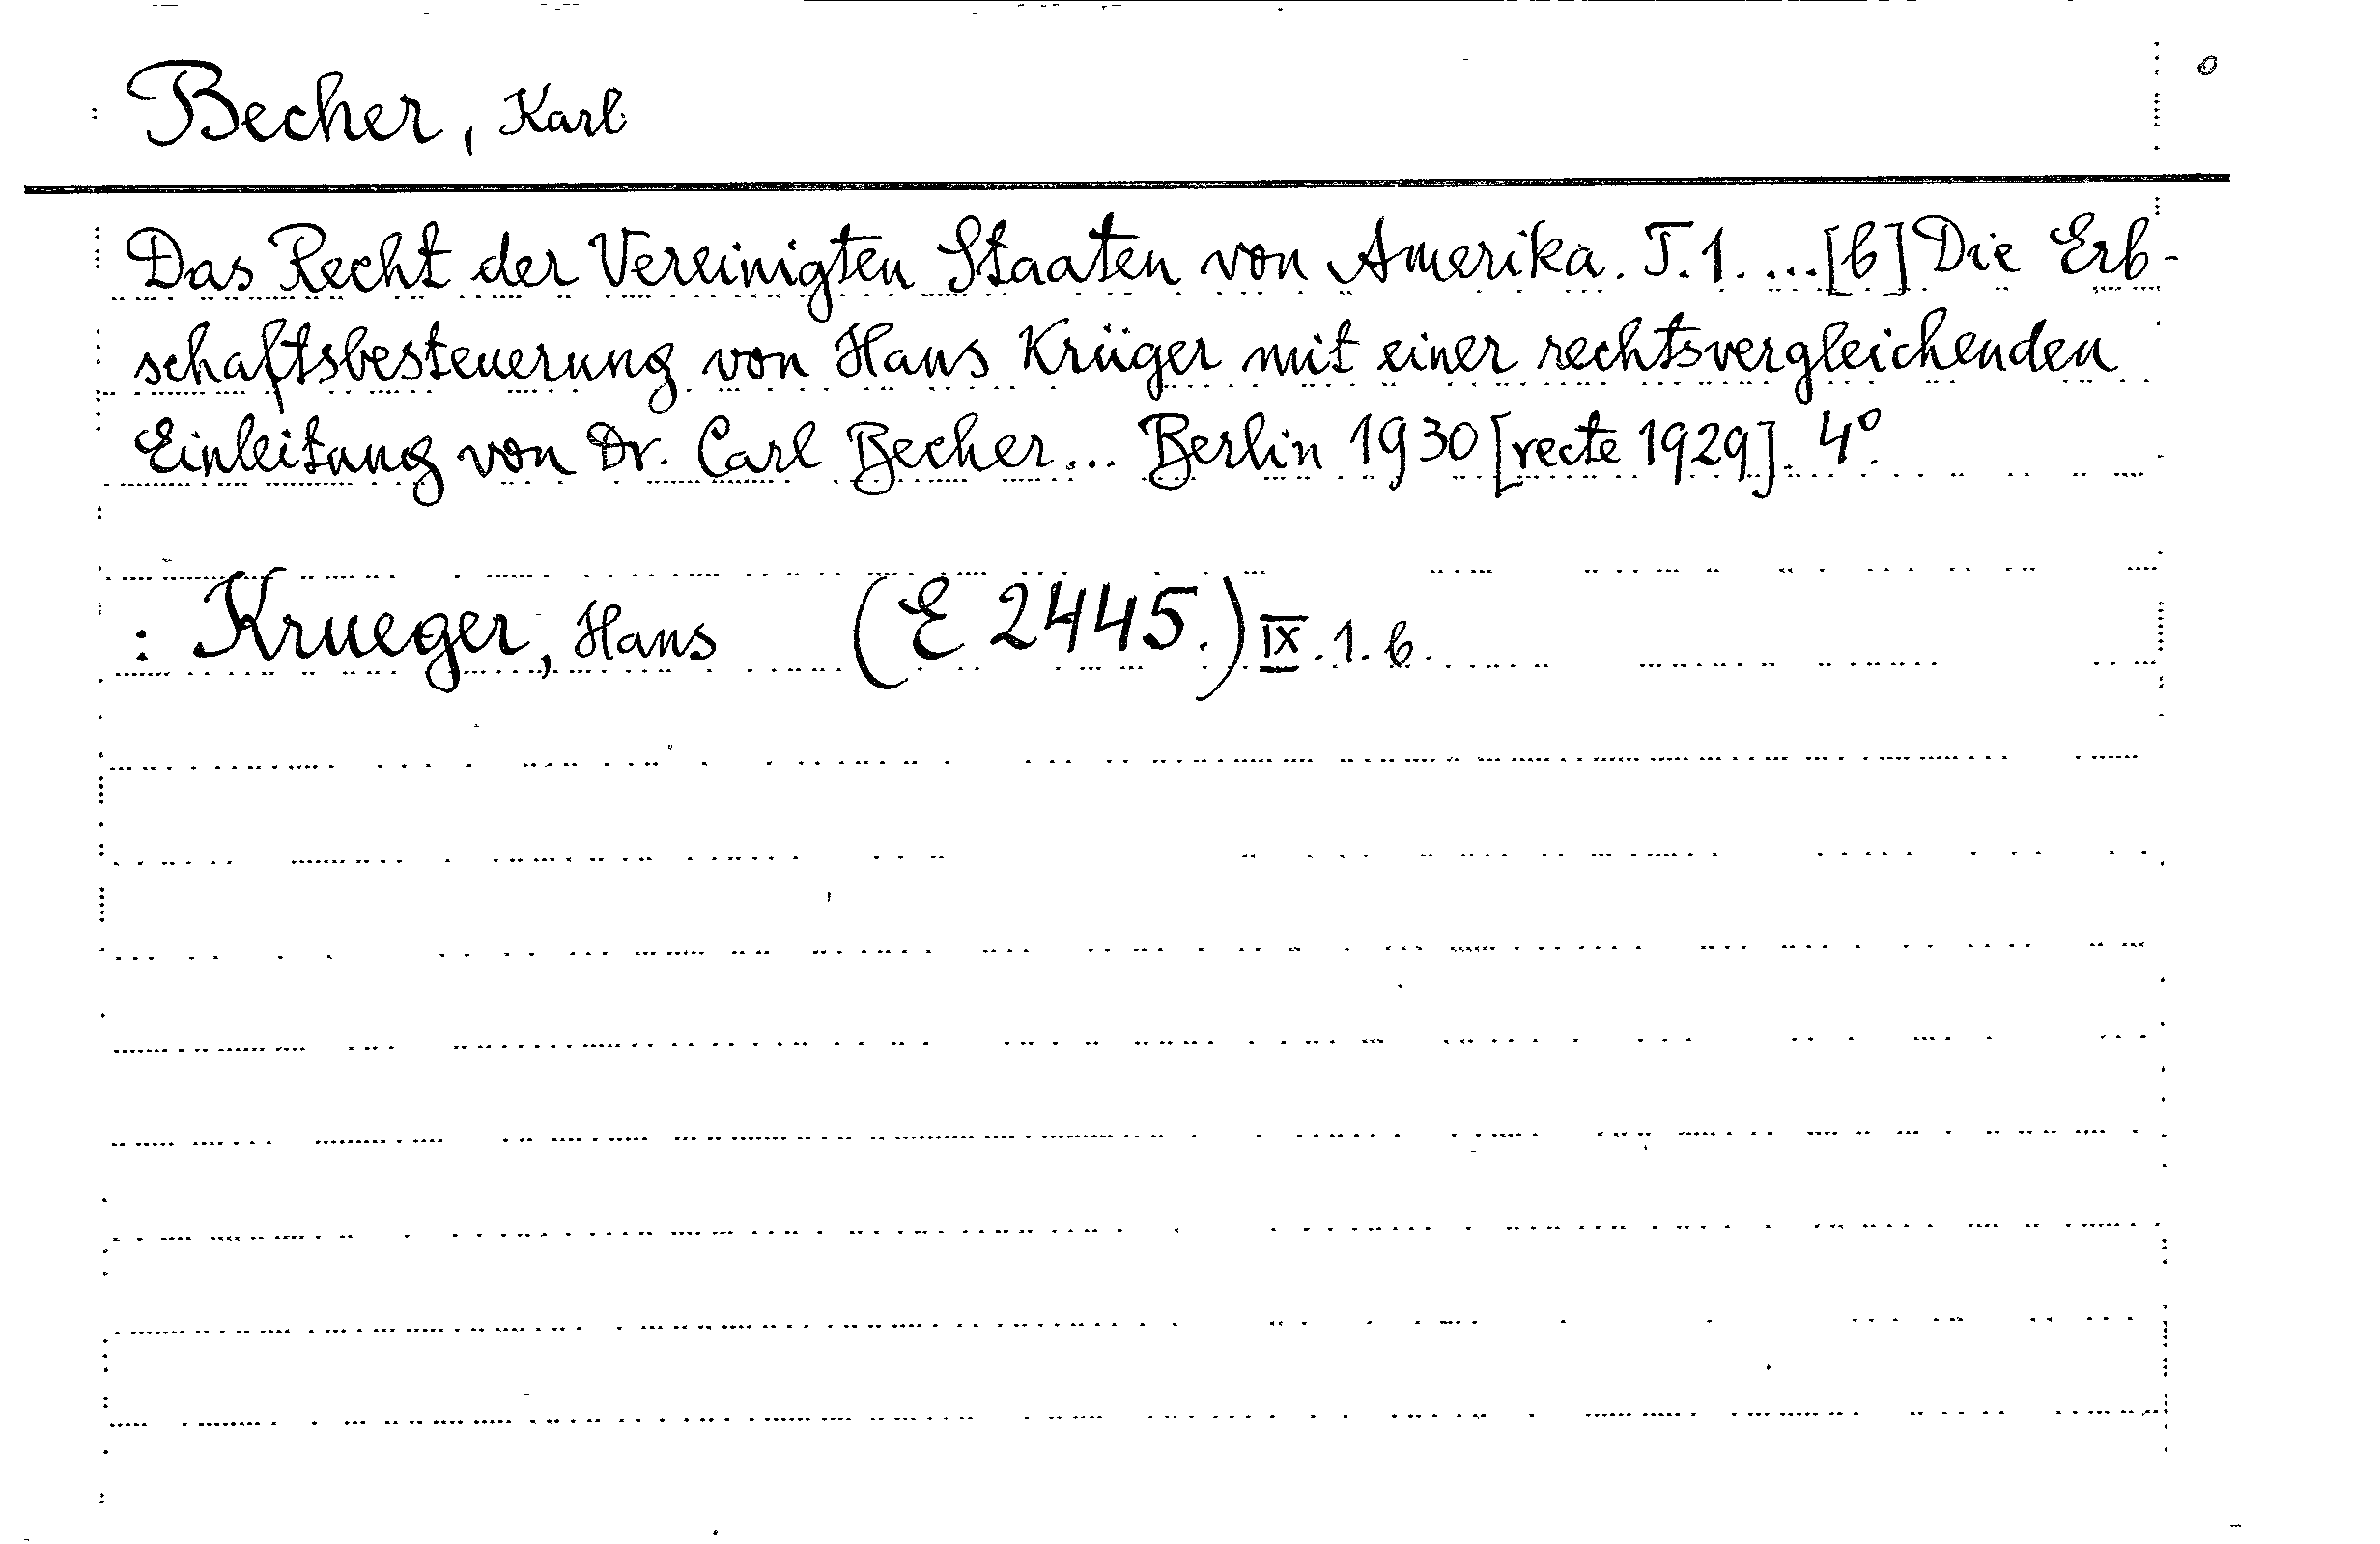 Becher, Karl
Das Recht der Vereinigten Staaten von Amerika. T. 1. ...[b] Die Erb-
schaftsbesteuerung von Hans Krüger mit einer rechtsvergleichenden
Einleitung von Dr. Carl Becher... Berlin 1930 [recte 1929]. 4°.
: Krueger, Hans (E 2445.) IX. 1. b.